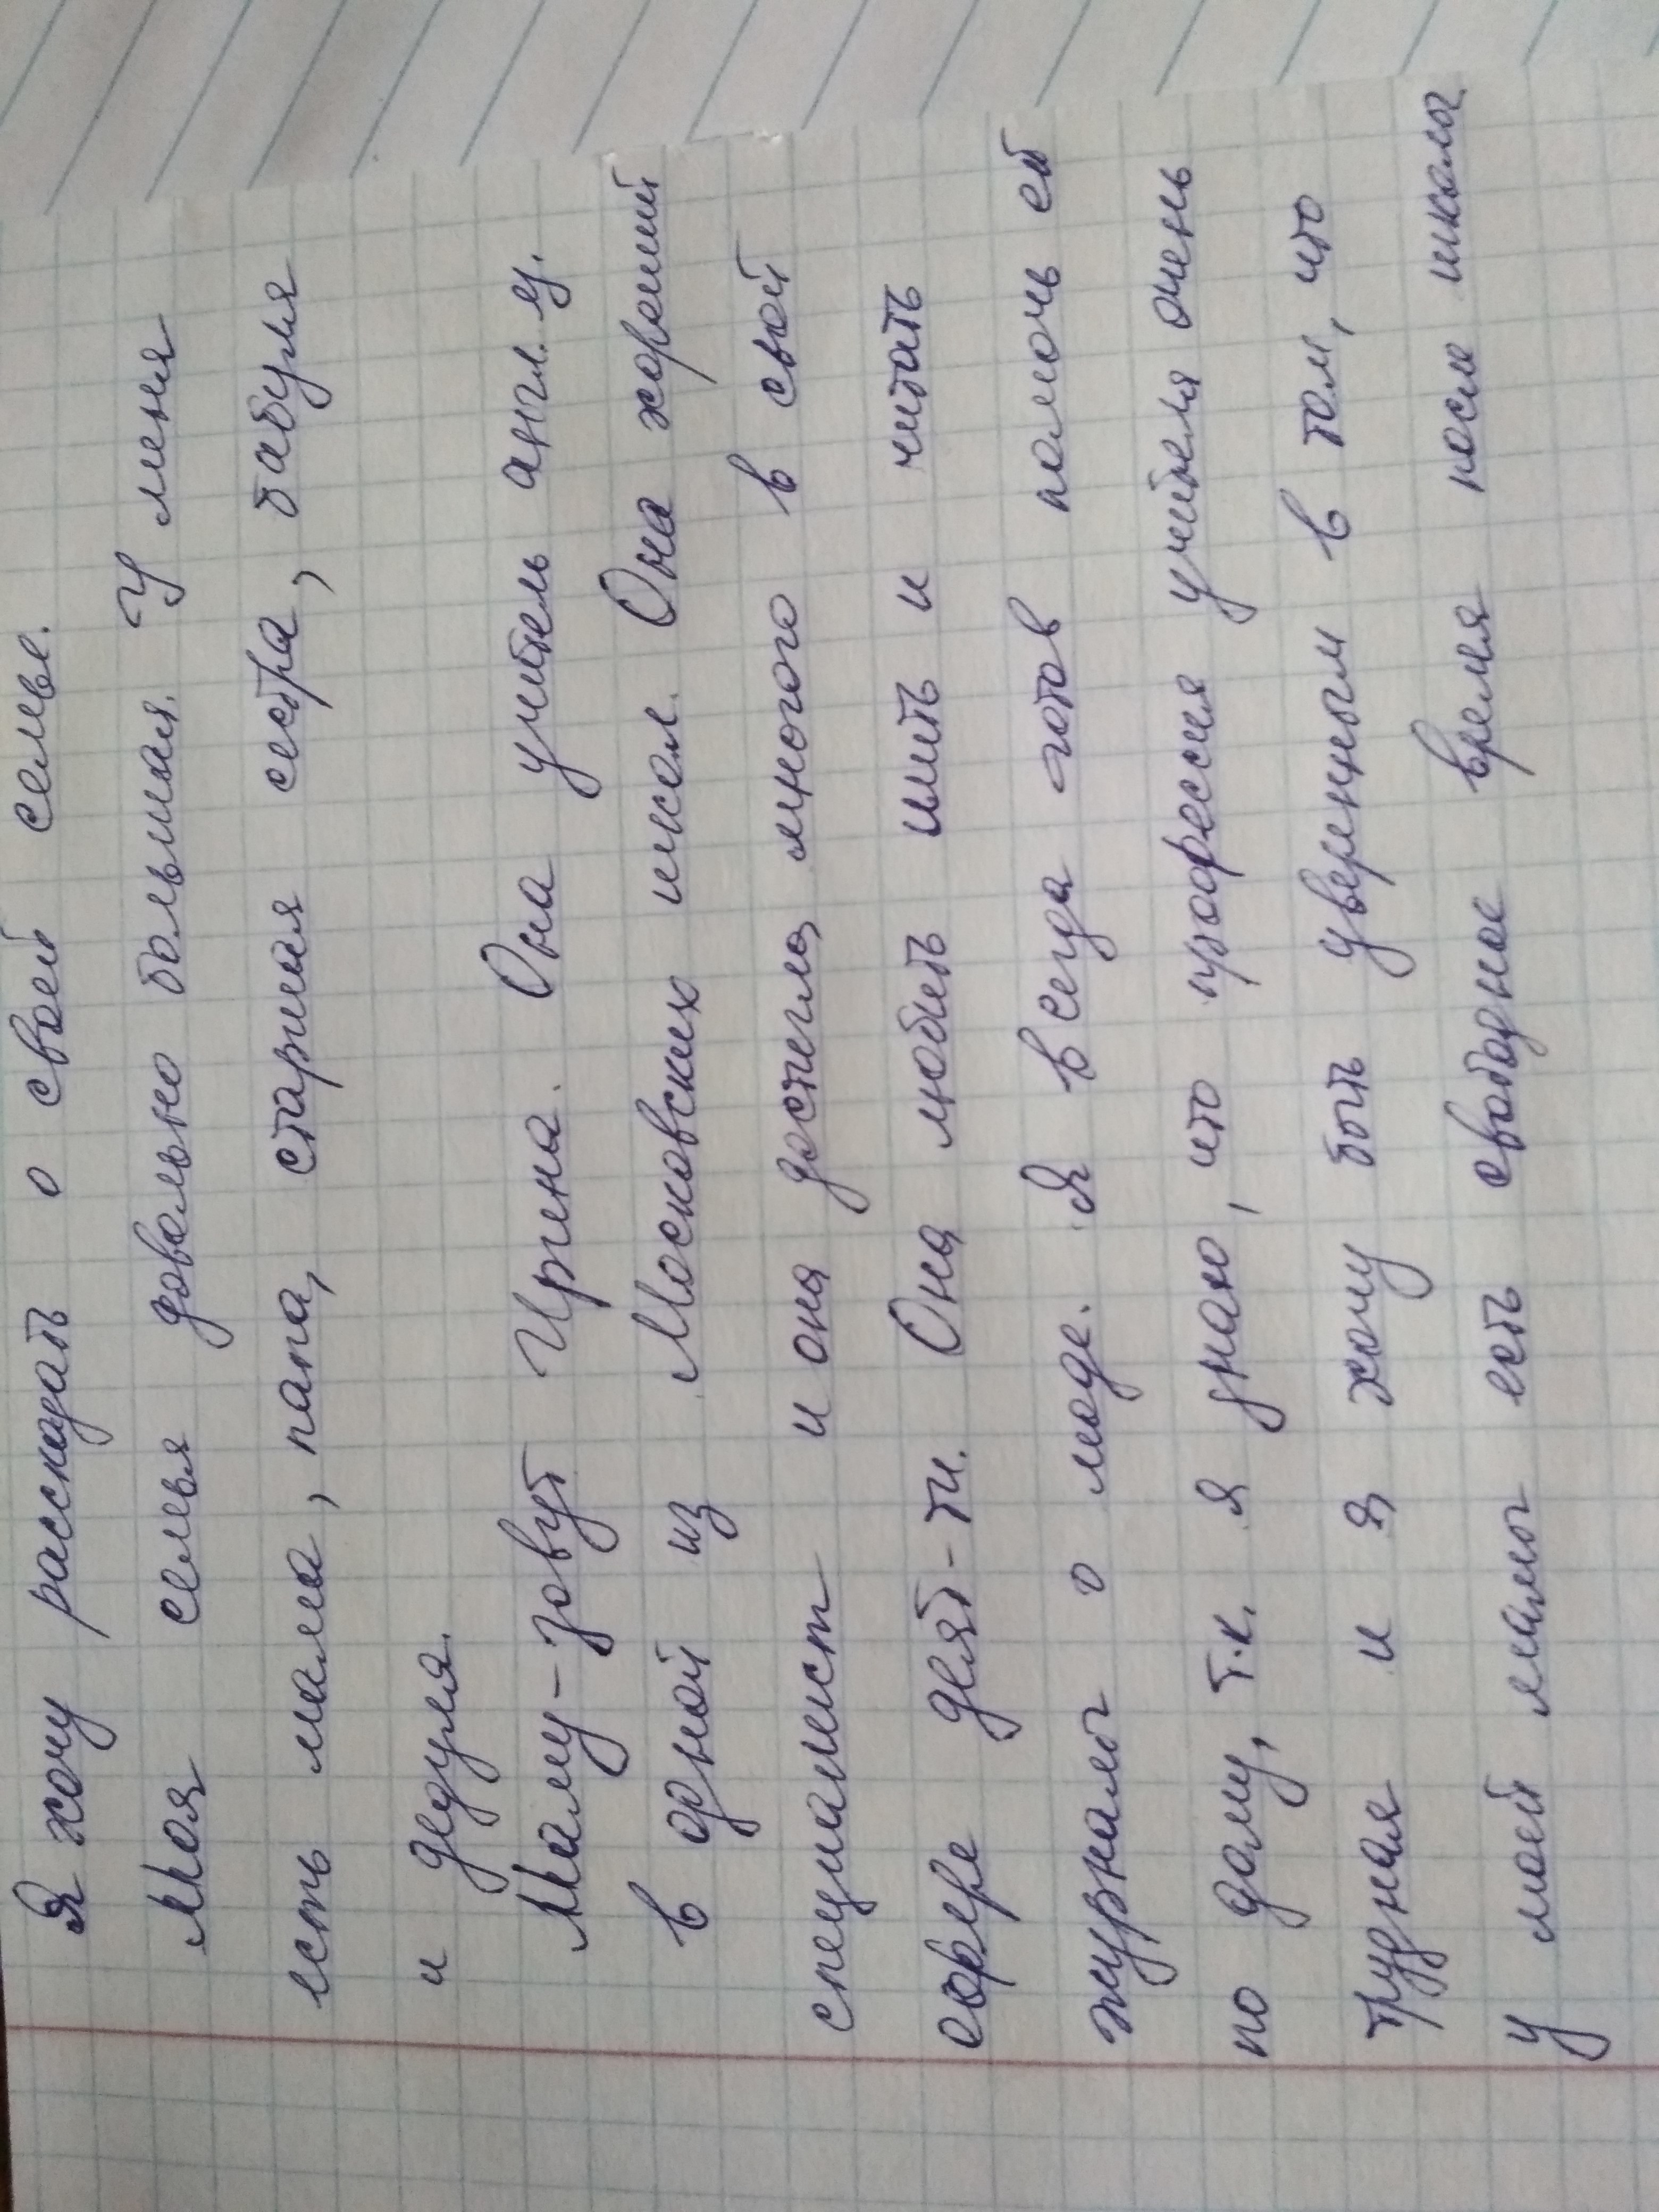 Я хочу рассказать о своей семье.
Моя семья довольно большая. У меня
есть мама, папа, старшая сестра, бабуля
и дедуля.
Маму-зовут Ирина. Она учитель англ. я.
в одной из Московских школ. Она хороший
специалист и она достигла многого в свой
сфере деят-ти. Она любить шить и читать
журналы о моде. Я всегда готов помочь ей
по дому, т.к. я знаю, что профессия учителя очень
трудная и я хочу быть уверенным в том, что
у моей мамы есть свободное время после школы